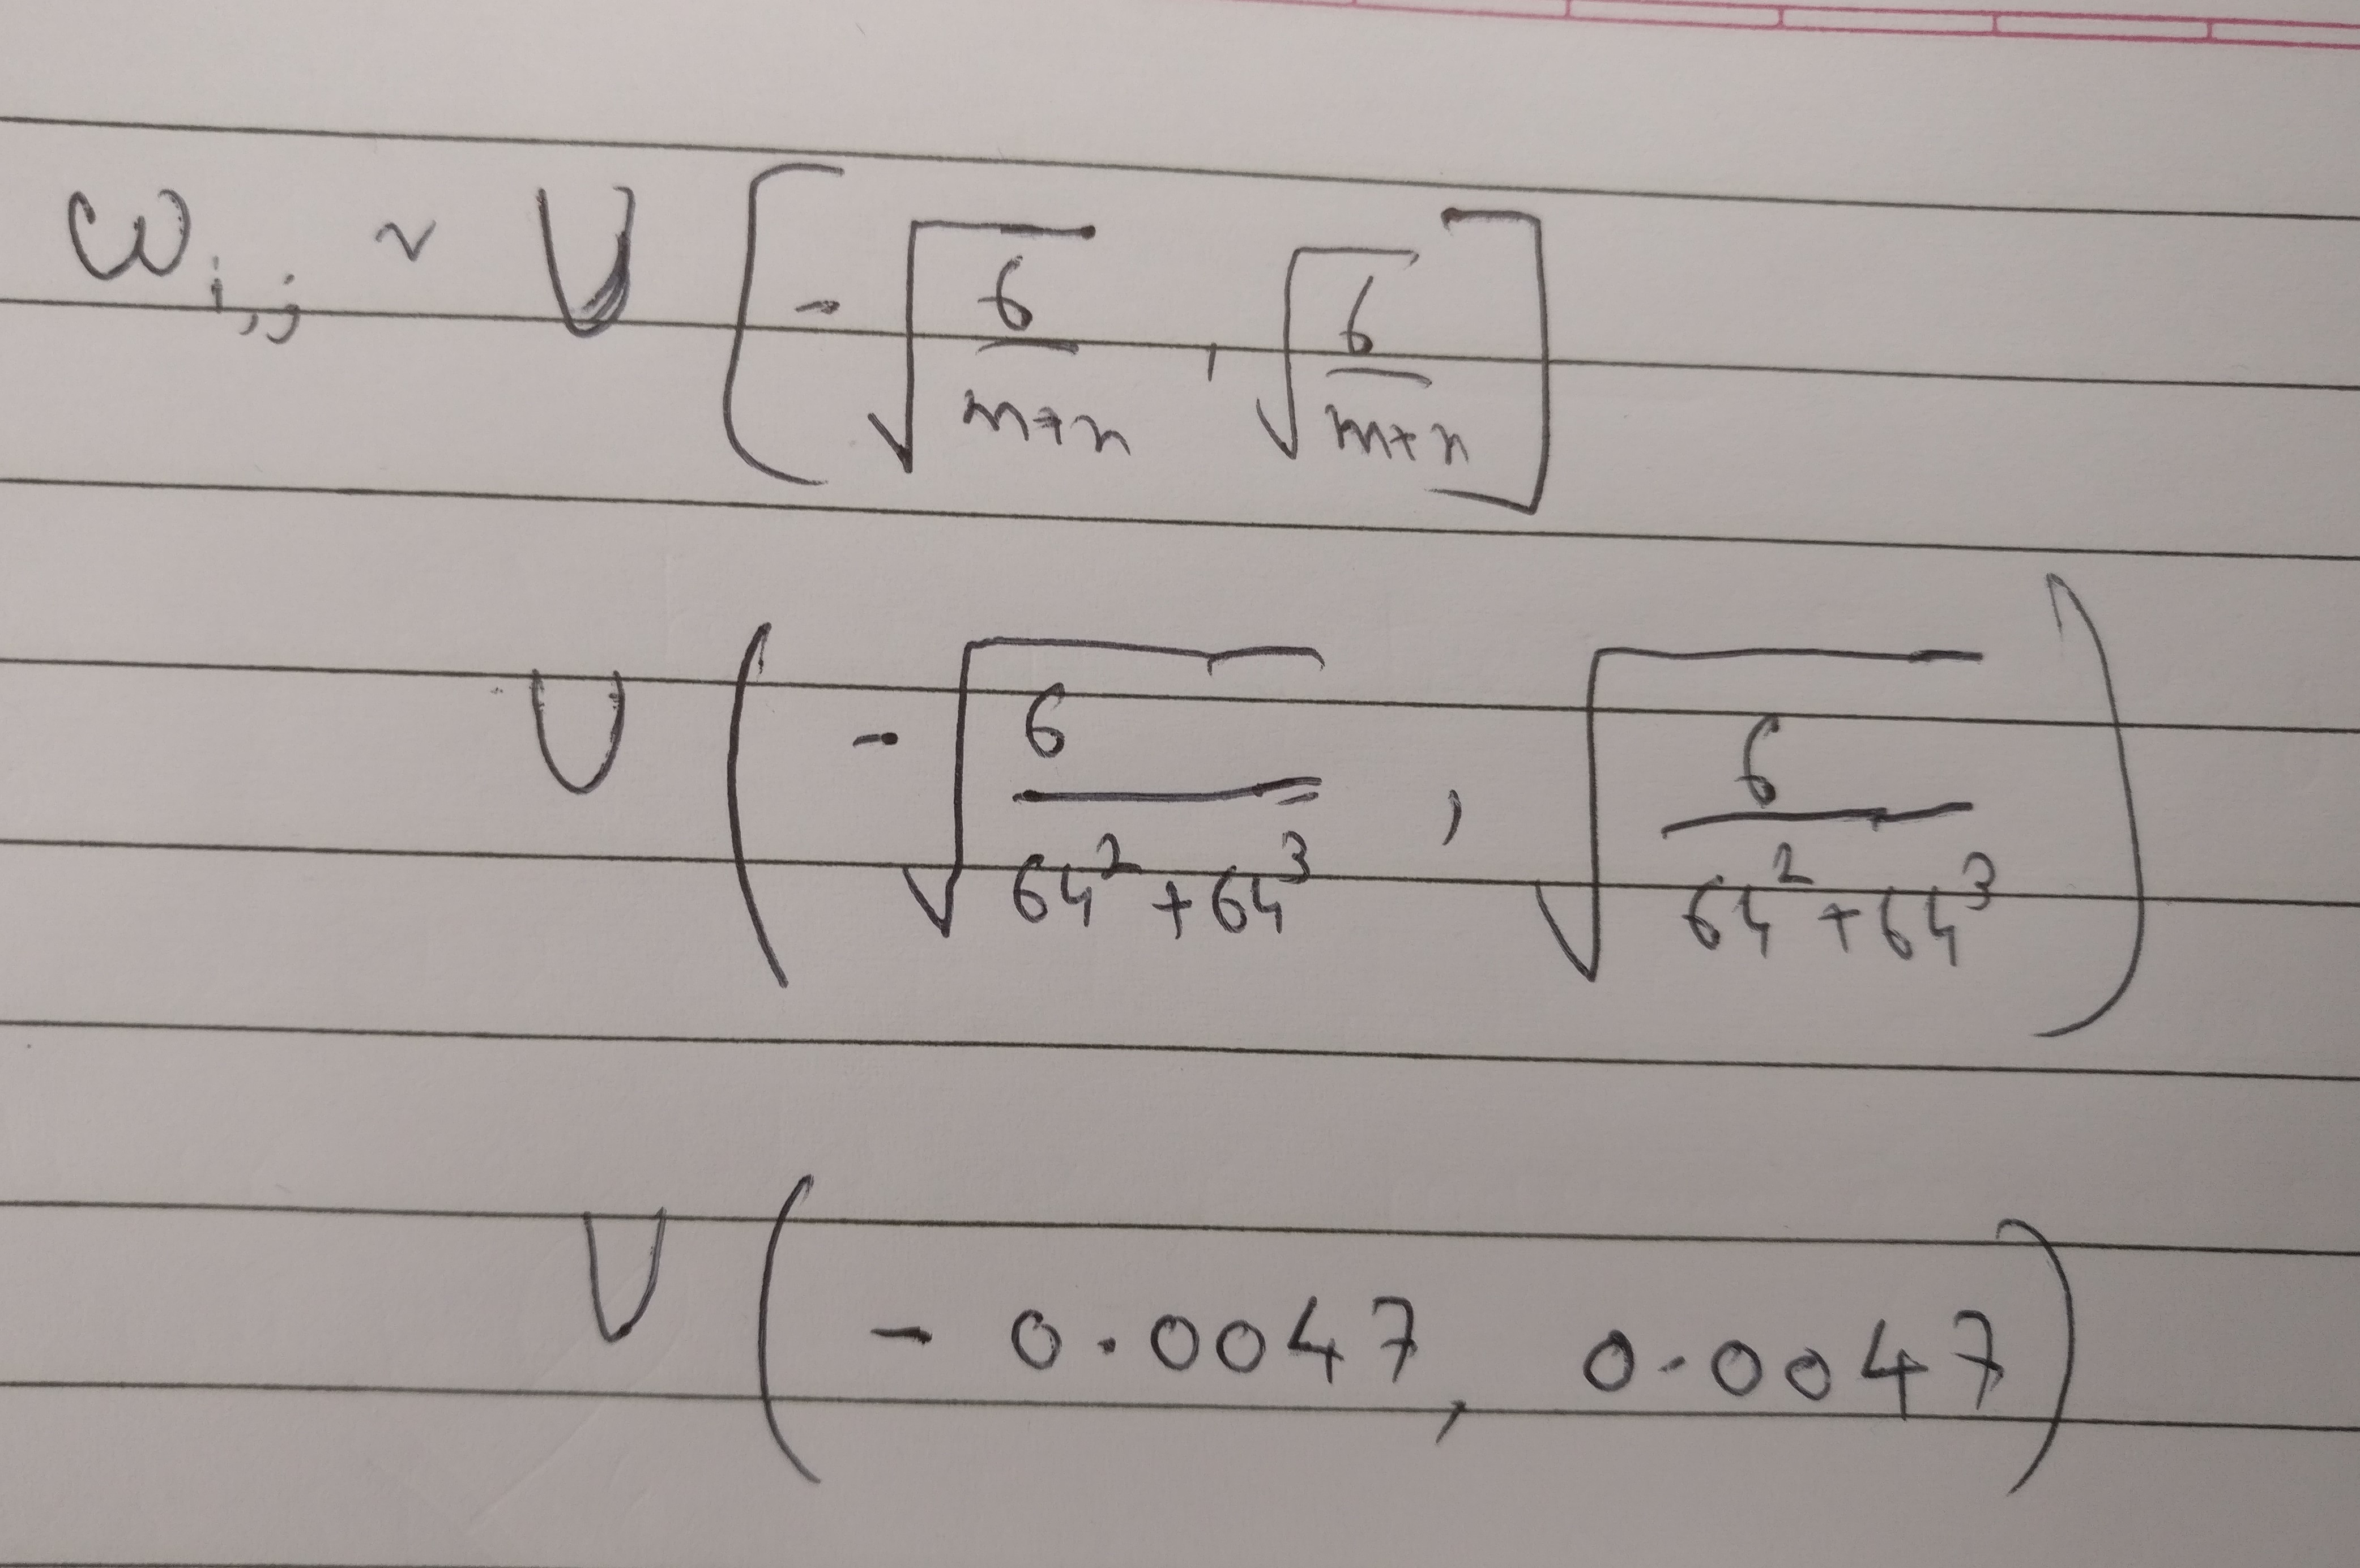 ω_{i,j} ~ U [ -√(6/(m+n)) , √(6/(m+n)) ]
U ( -√(6/(64² + 64³)) , √(6/(64² + 64³)) )
U ( - 0.0047, 0.0047 )